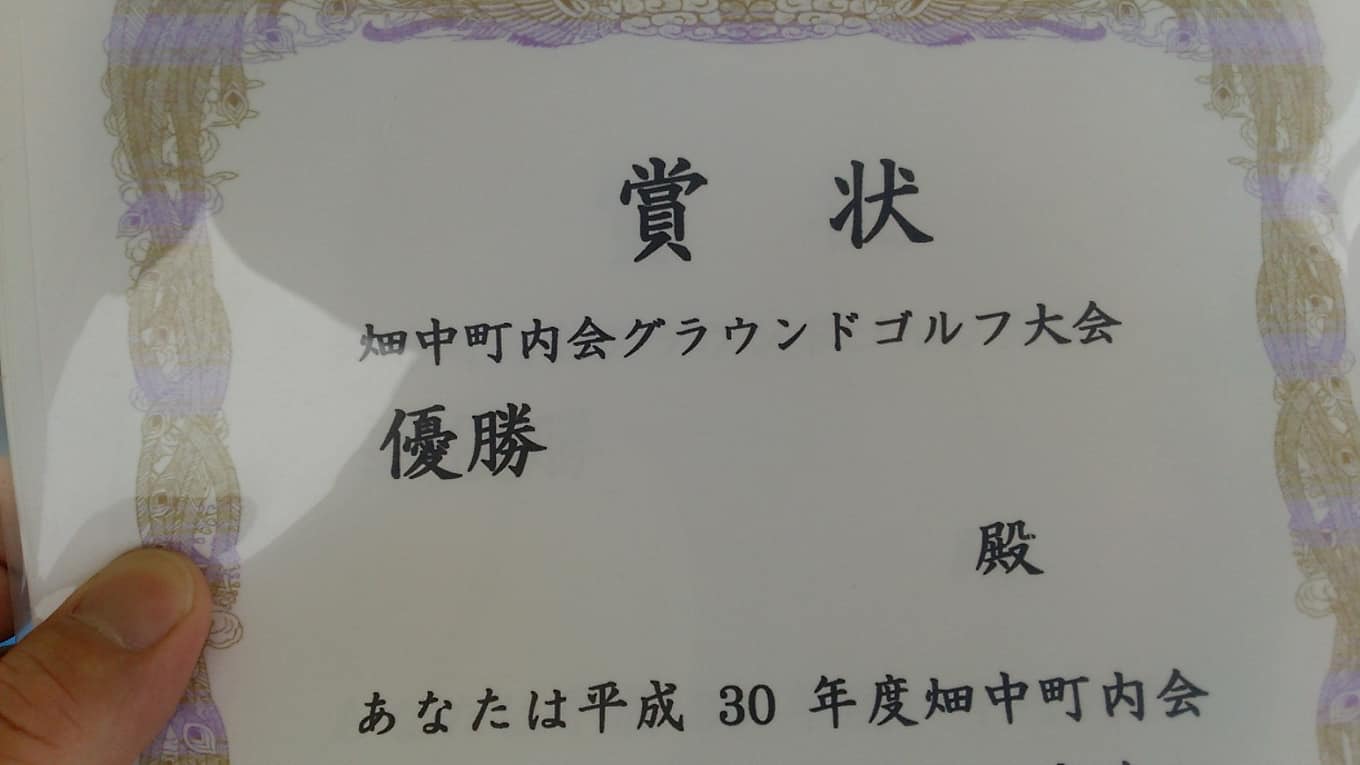 賞 状
畑中町内会グラウンドゴルフ大会
優勝
殿
あなたは平成 30 年度畑中町内会